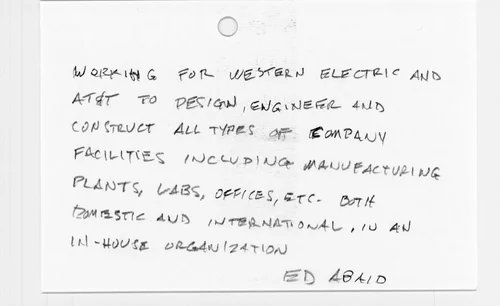 WORKING FOR WESTERN ELECTRIC AND
AT&T TO DESIGN, ENGINEER AND
CONSTRUCT ALL TYPES OF COMPANY
FACILITIES INCLUDING MANUFACTURING
PLANTS, LABS, OFFICES, ETC. BOTH
DOMESTIC AND INTERNATIONAL, IN AN
IN-HOUSE ORGANIZATION
ED ABAID